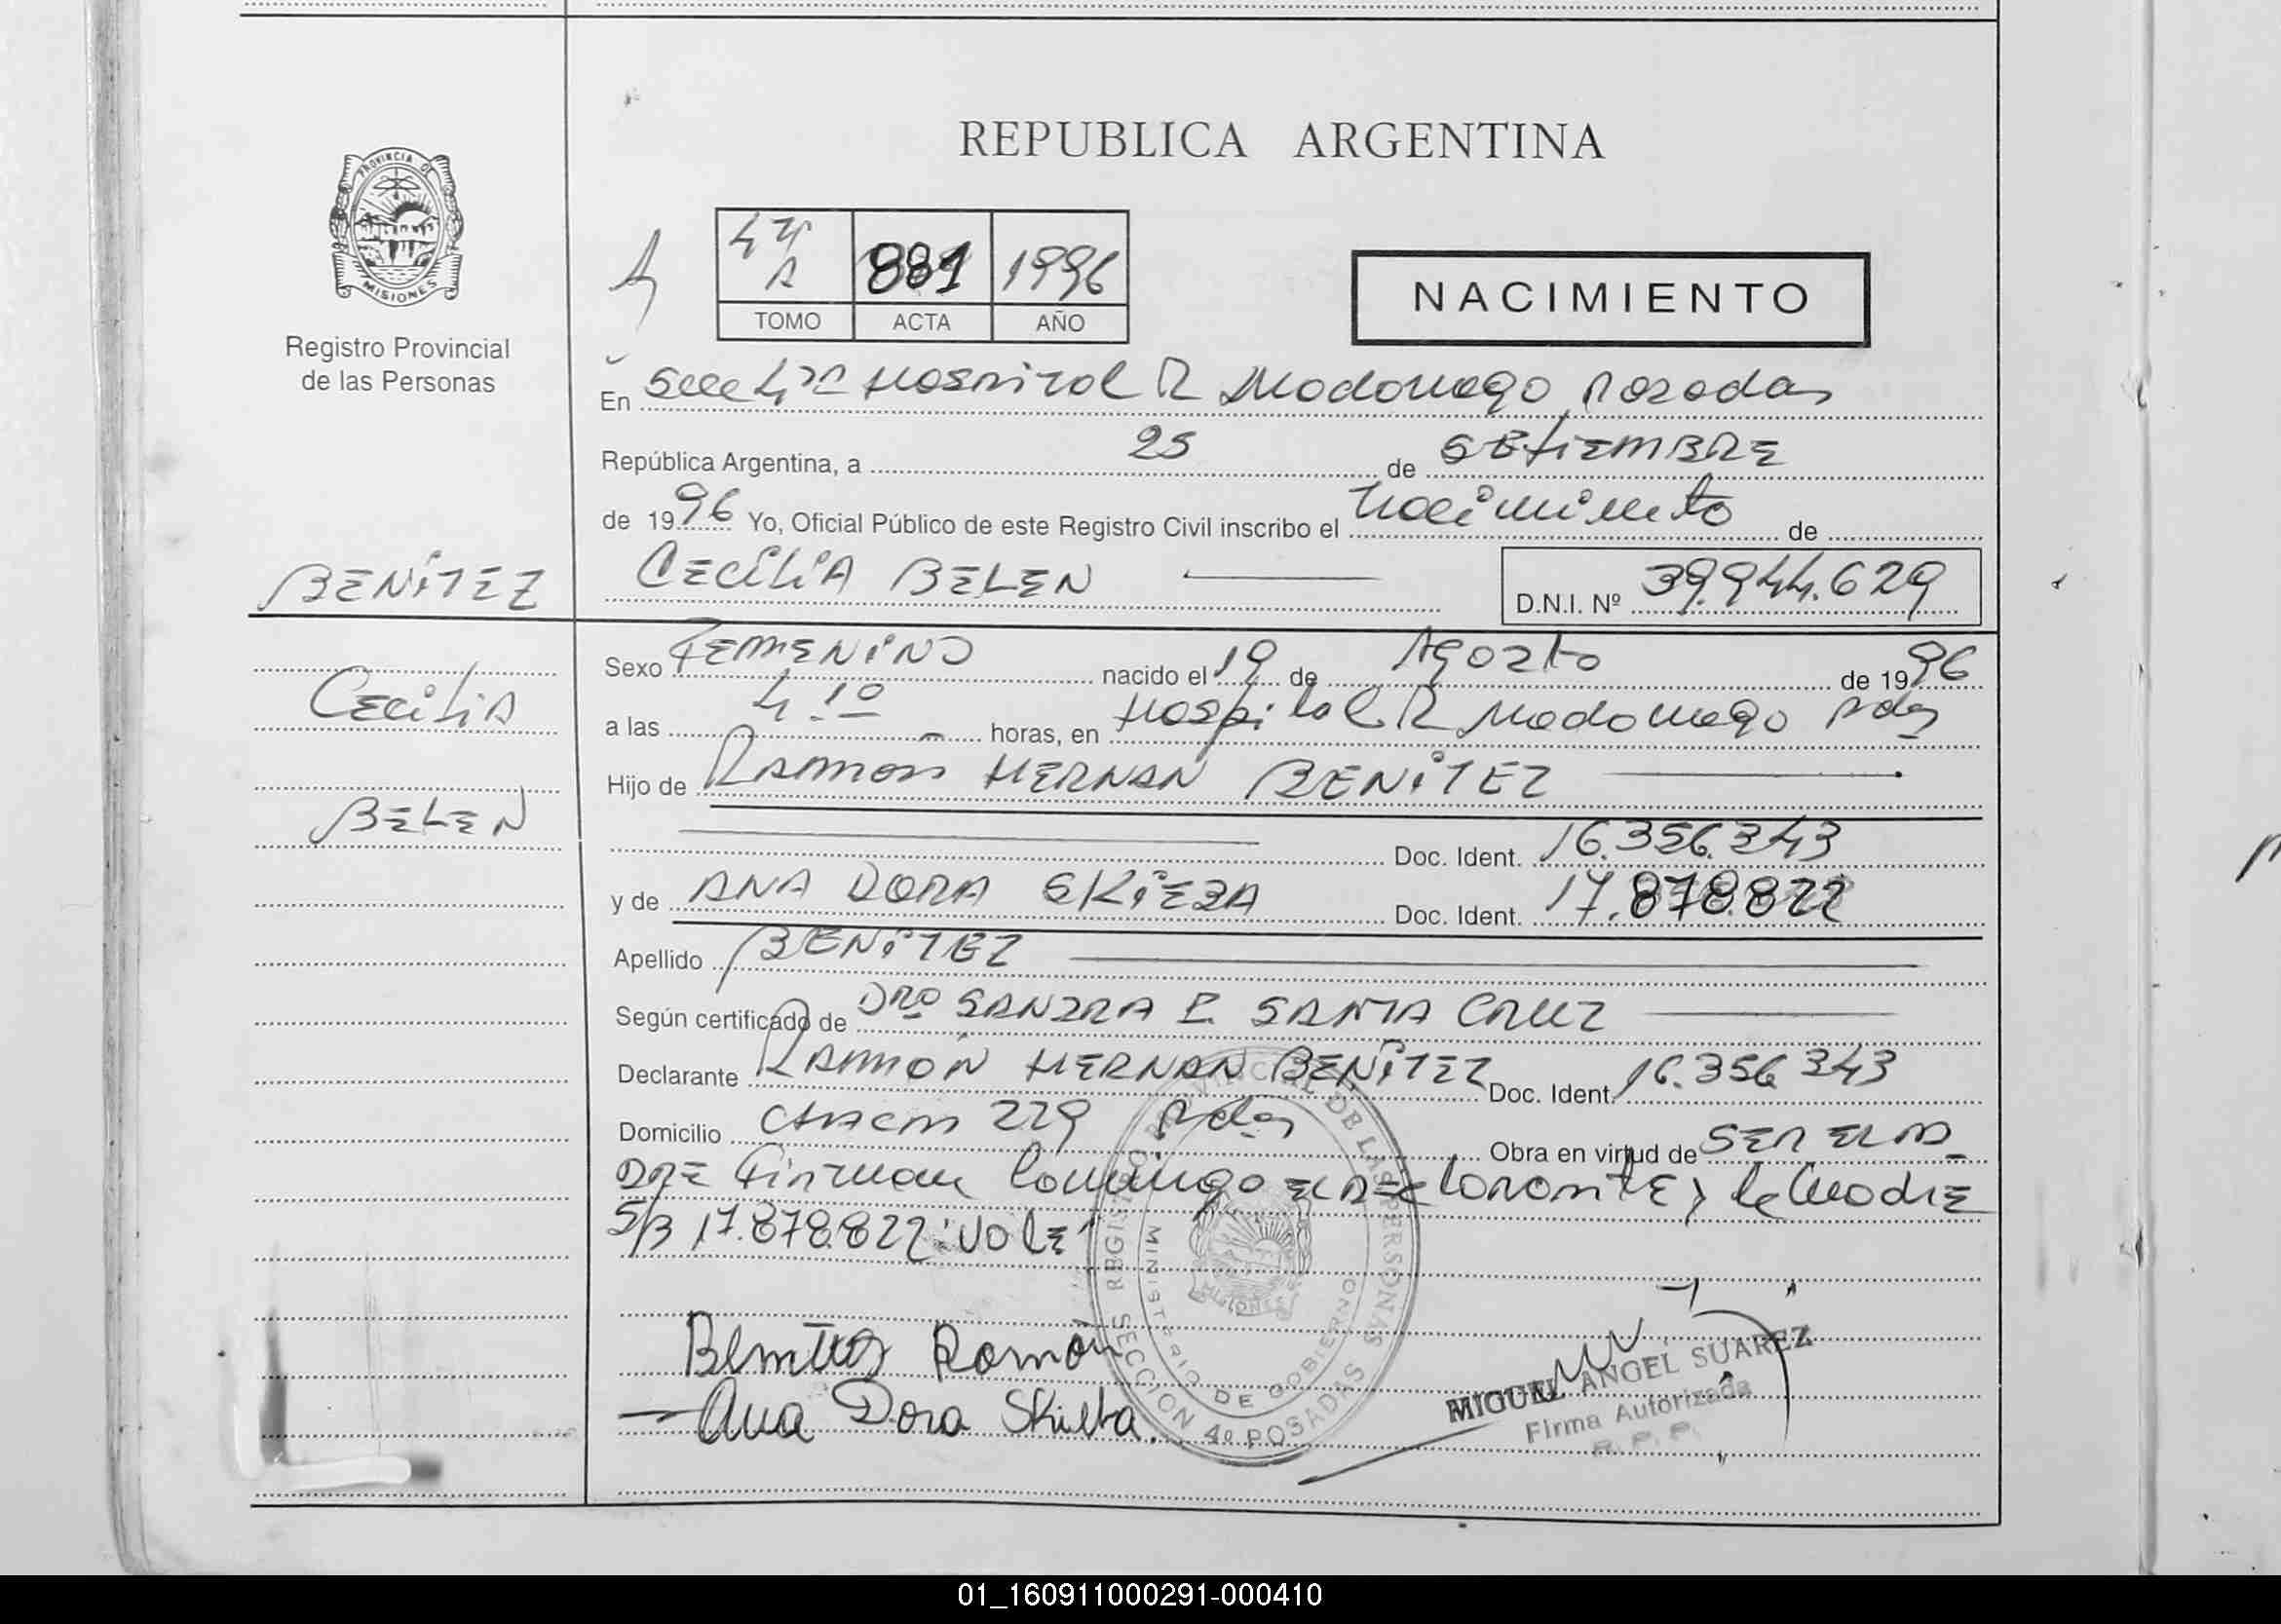 REPUBLICA ARGENTINA
PROVINCIA DE
MISIONES
Registro Provincial
de las Personas
881 1996
TOMO ACTA AÑO
NACIMIENTO
En Secc 4ta Hospital R Madariaga Posadas
República Argentina, a 25 de SETIEMBRE
de 1996 Yo, Oficial Público de este Registro Civil inscribo el Nacimiento de
BENITEZ
CECILIA BELEN
D.N.I. Nº 39.944.629
Sexo FEMENINO nacido el 19 de Agosto de 1996
CECILIA
a las 4.10 horas, en Hospital R Madariaga Pdas
Hijo de RAMON HERNAN BENITEZ
BELEN
Doc. Ident. 16.356.343
y de ANA DORA SKIEBA Doc. Ident. 17.878.822
Apellido BENITEZ
Según certificado de Dra SANDRA E. SANTA CRUZ
Declarante RAMON HERNAN BENITEZ Doc. Ident. 16.356.343
Domicilio CHACO 229 Pdas Obra en virtud de SER EL PA
DRE Firman conmigo el declarante y la Madre
S/B 17.878.822: Vale
REGISTRO PROVINCIAL DE LAS PERSONAS
MINISTERIO DE GOBIERNO
MISIONES
SECCION 4a POSADAS
Benitez Ramón
Ana Dora Skieba.
MIGUEL ANGEL SUAREZ
Firma Autorizada
R. P. P.
01_160911000291-000410